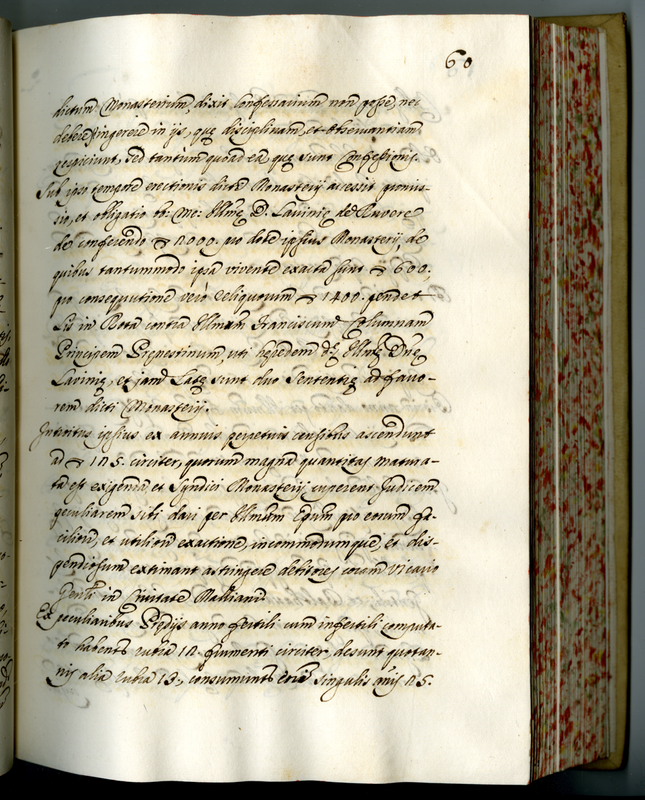 60
dictum Monasterium, dixit Confessarium non posse, nec
debere ingerere in ijs, quę disciplinam, et observantiam
respiciunt, sed tantum quoad ea, quę sunt Confessionis.
Sub ipso tempore erectionis dicti Monasterij accessit promis-
sio, et obligatio bo: me: Illmę D. Lavinię de Ruvere
de conferendo 2000. pro dote ipsius Monasterij, de
quibus tantummodo ipsa vivente exacta sunt 600.
pro consequutione vero reliquorum 1400. pendet
Lis in Rota contra Illmum Franciscum Columnam
Principem Pręnestinum, uti heredem d. Illmę Dnę
Lavinię, et iam Latę sunt duo Sententię ad favo-
rem dicti Monasterij.
Introitus ipsius ex annuis perpetuis censibus ascendunt
ad 125. circiter, quorum magna quantitas matura-
ta est exigenda et Syndici Monasterij cuperent Judicem
peculiarem sibi dari per Illmum Epum pro eorum fa-
ciliori, et utiliori exactione, incommodumque, et dis-
pendiosum extimant astringere debitores coram Vicario
Gen̄li in Civitate Mattiani
Ex peculiaribus Prędijs anno fertili cum infertili computa-
to habent rubra 12. frumenti circiter, desunt quotan-
nis alia rubra 13., consumunt enim singulis annis 25.